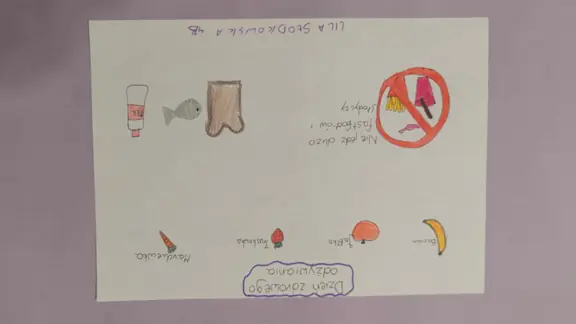 Dzień zdrowego
odżywiania
Banan
Jabłko
Truskawka
Marchewka
Nie jedz dużo
fastfoodów i
słodyczy
LILA SŁODKOWSKA 4B